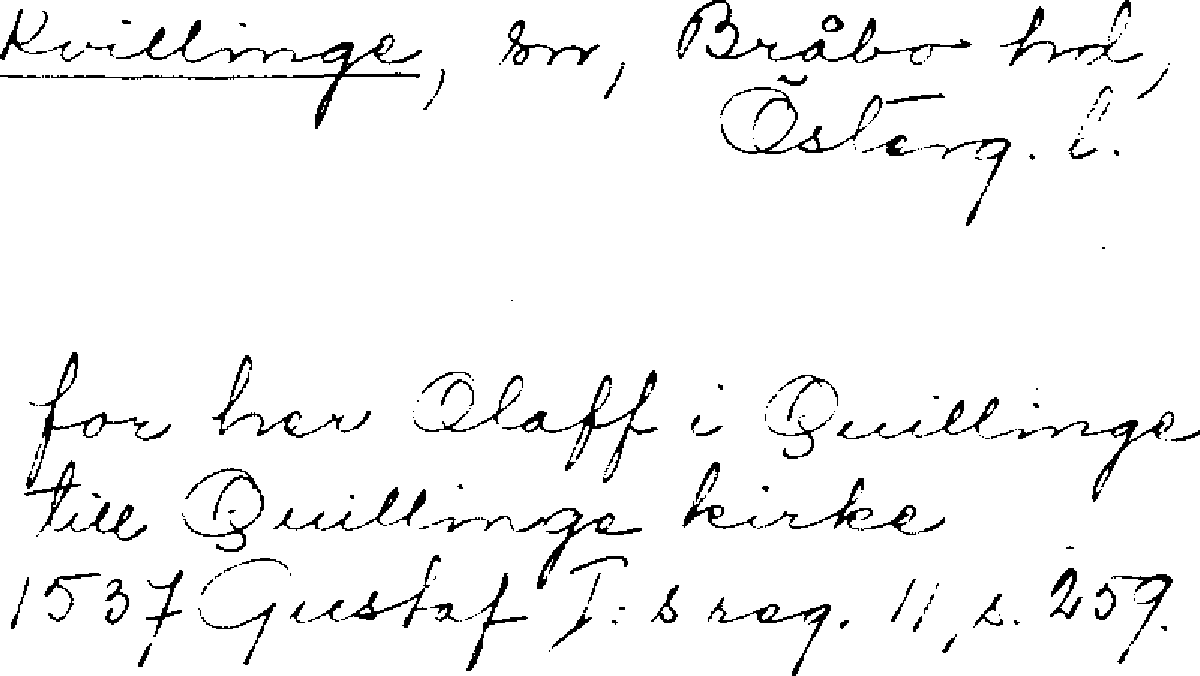 Kvillinge, sn, Bråbo hd,
Österg. l.
for her Olaff i Quillinge
till Quillinge kirke
1537 Gustaf I:s reg. 11, s. 259.